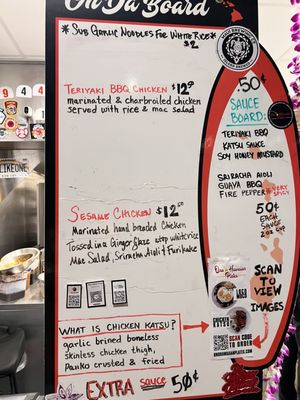 On Da Board
* Sub Garlic Noodles For White Rice *
$2
Teriyaki BBQ Chicken $12.00
marinated & charbroiled chicken
served with rice & mac salad
Sesame Chicken $12.00
Marinated hand breaded Chicken
Tossed in a Ginger glaze atop white rice
Mac Salad, Sriracha Aioli & Furikake
What is Chicken Katsu?
garlic brined boneless
skinless chicken thigh,
Panko crusted & fried
Extra sauce 50¢
.50¢
Sauce
Board:
Teriyaki BBQ
Katsu Sauce
Soy Honey Mustard
Sriracha Aioli
Guava BBQ
Fire Pepper
*Very
Spicy
50¢
Each
Sauce
2oz cup
Scan
to
View
Images
SCAN CODE
TO ORDER
LIKEONE